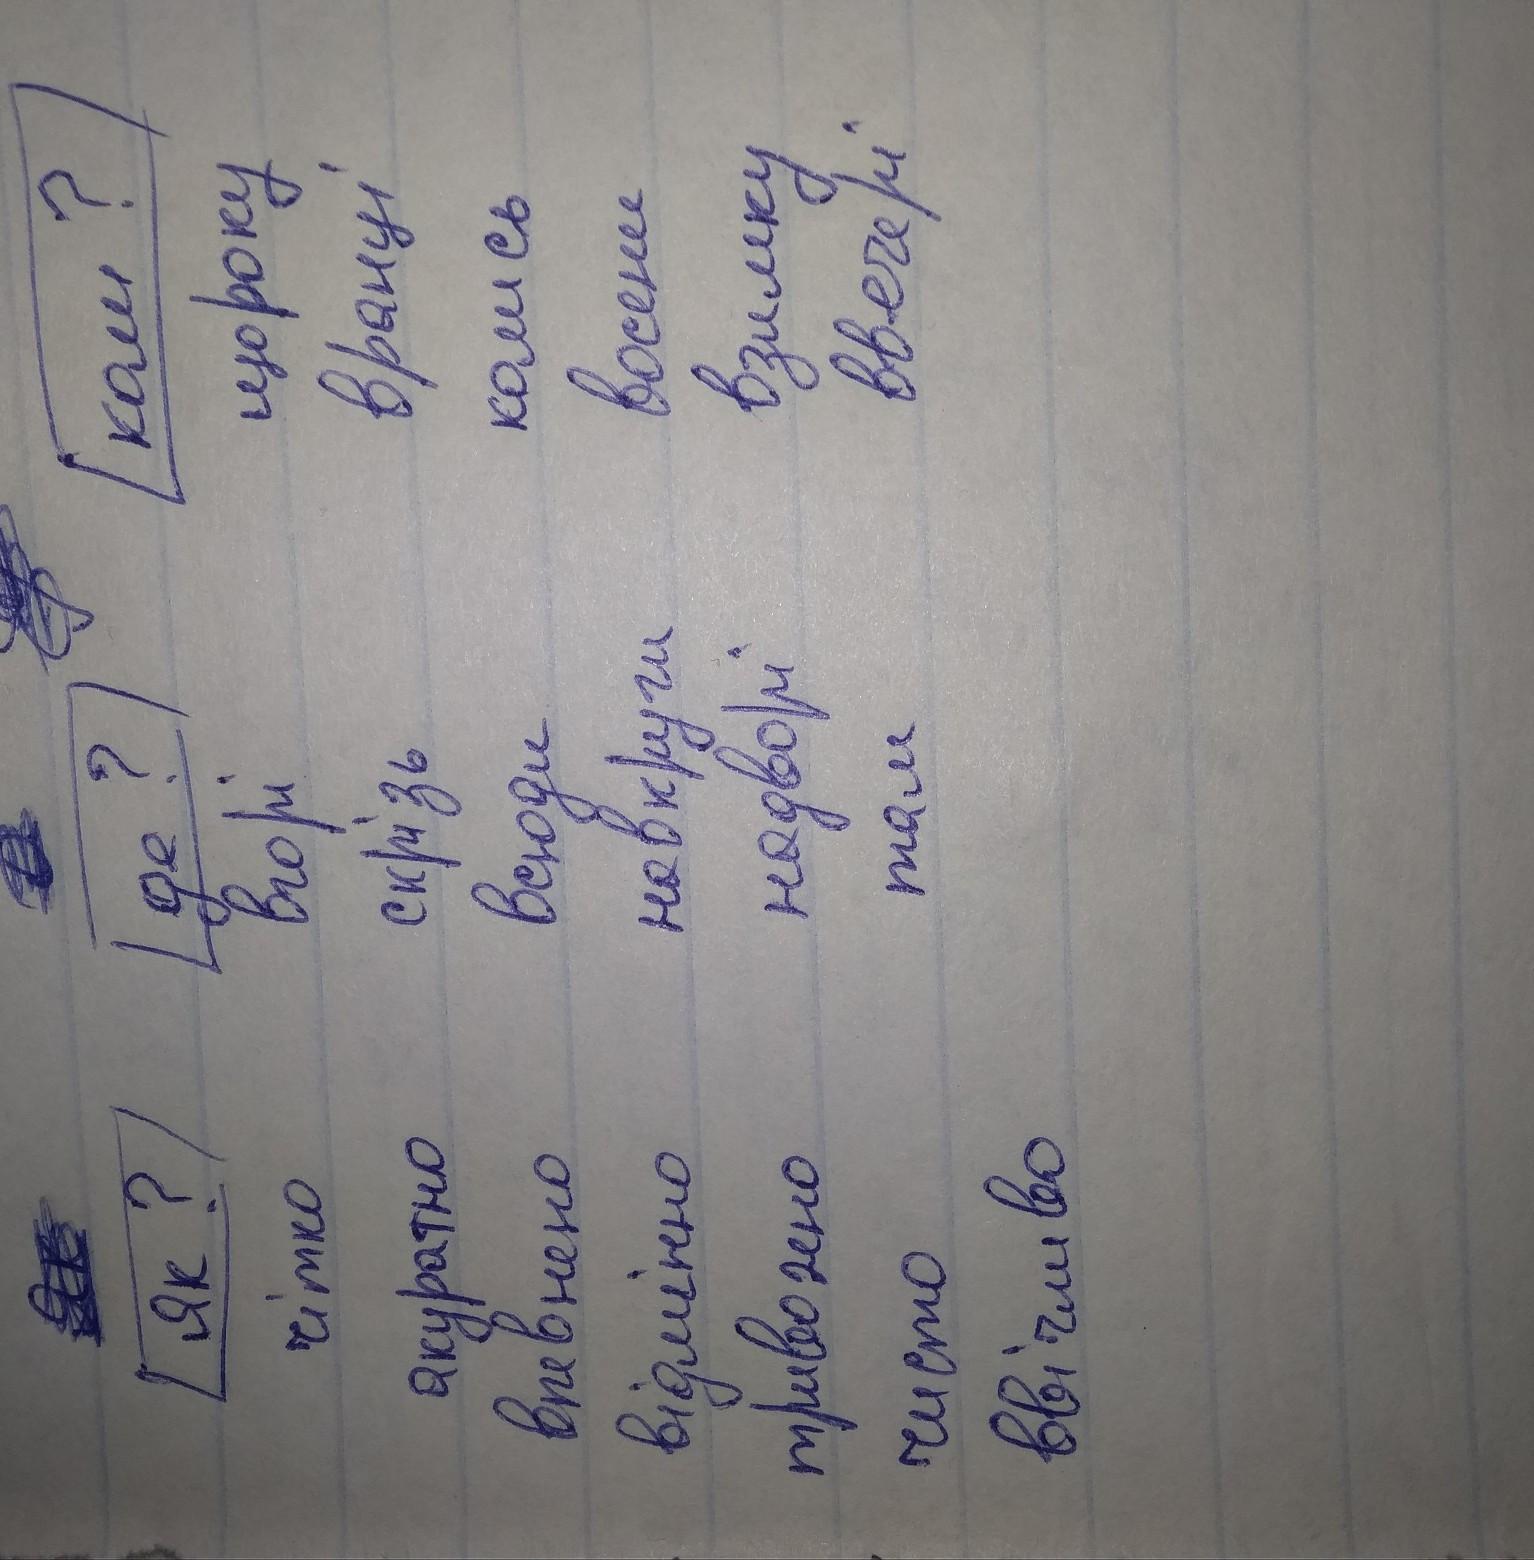 як ? де ? коли ?
чітко вгорі щороку
акуратно скрізь вранці
впевнено всюди колись
відмінно навкруги восени
тривожно надворі взимку
чисто там ввечері
ввічливо